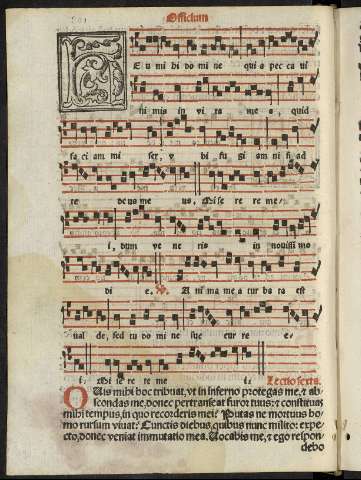 Officium
H
E u mi hi do mi ne qui a pec ca ui
ni mis in vi ta me a, quid
fa ci am mi ser, v bi fu gi am ni si ad
te deus me us, Mi se re re me/
i, dum ve ne ris in nouissi mo
di e. V. A ni ma me a tur ba ta est
ual de, sed tu do mi ne suc cur re e/
i, Mi se re re me i. Lectio sexta.
QUis mihi hoc tribuat, vt in inferno protegas me, & ab/
scondas me, donec pertranseat furor tuus: & constituas
mihi tempus, in quo recorderis mei? Putas ne mortuus ho/
mo rursum viuat? Cunctis diebus, quibus nunc milito: expe/
cto, donec veniat immutatio mea. Uocabis me, & ego respon/
debo